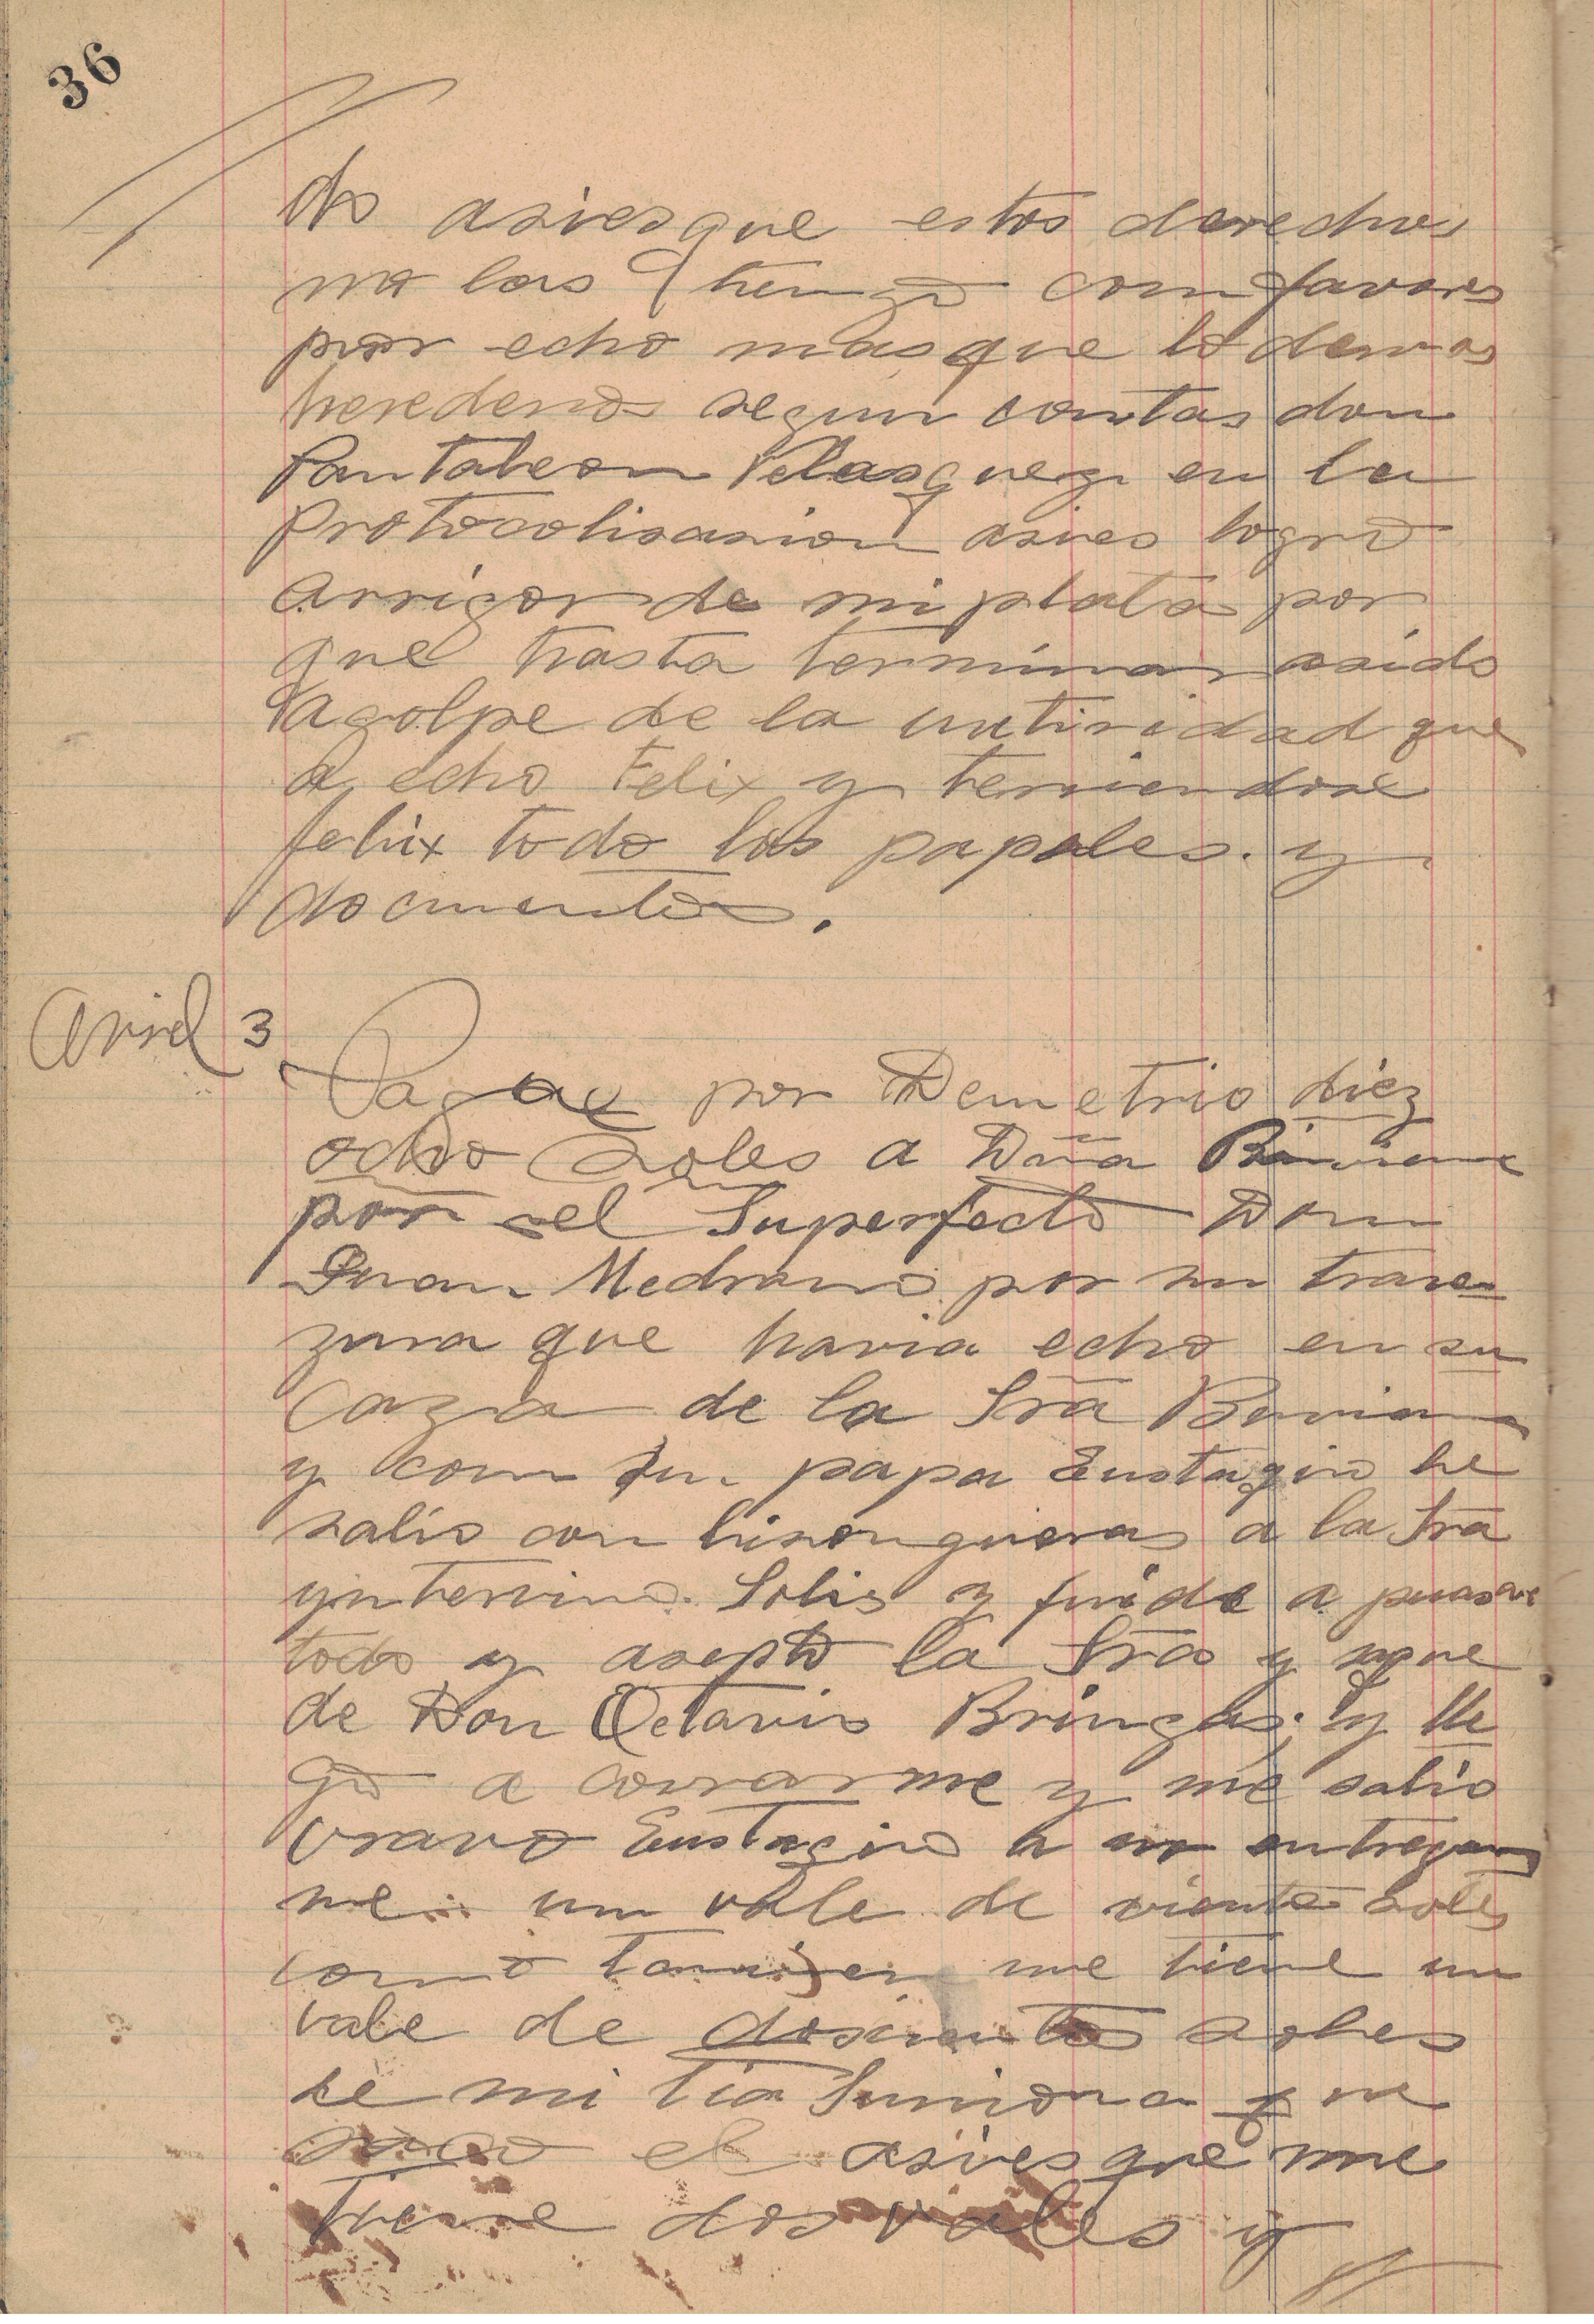 36
do asiesque estos derechos
no los tengo con favores
por echo mas que lo demas
herederos segun contas don
Pantaleon Velasquez en la
Protocolisasion asies logro
arrigor de mi plata por
que hasta terminar asido
agolpe de la autividad que
a echo Felix y teniendose
felix todo los papeles. y
documentos.
Avril 3
Pague por Demetrio diez
ocho Soles a Dña Biviana
por el Superfecto Don
Juan Medrano por su trave
zura que havia echo en su
Caza de la Srã Biviana
y con su papa Eustaqio le
salio con lisongueras a la Sra
yntervino Solis y fuide a
todo y asepto la Sra y
de Don Octavio Bringas; y lle
go a covrarme y me salio
vravo Eustaqio a no entregar
me un vale de viente soles
como tanvien me tiene un
vale de dosientos soles
de mi tia Simiona que
saco el asiesque me
tiene dos vales y